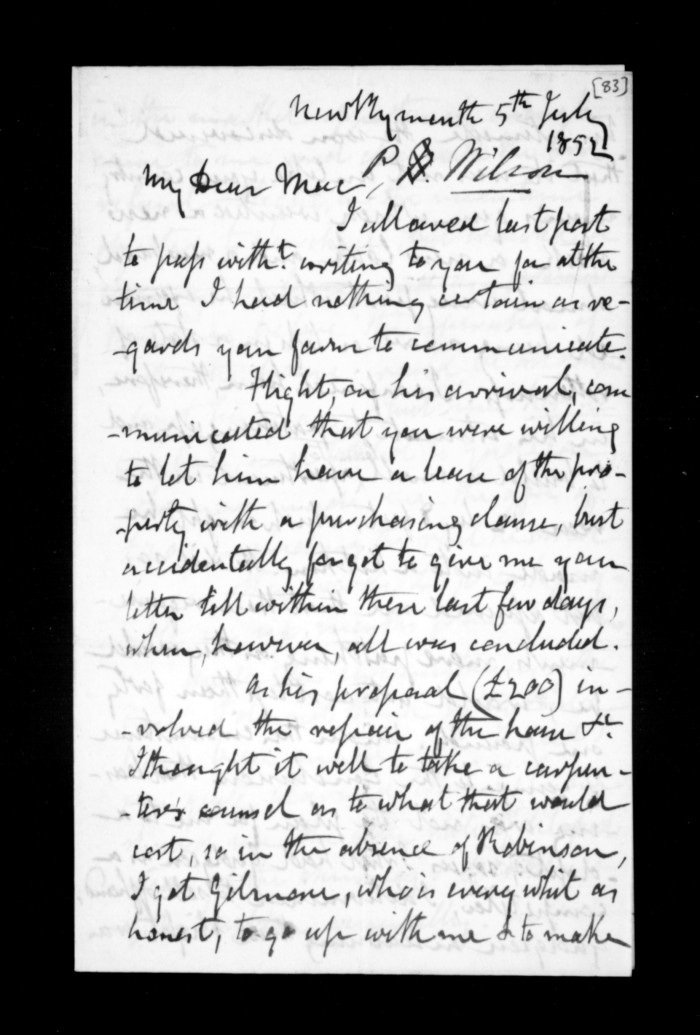 [83]
New Plymouth 5th July
1852
P. S. Wilson
My Dear Mac,
I allowed last post
to pass witht. writing to you for at the
time I had nothing certain as re-
-gards your farm to communicate.
Flight, on his arrival, com
-municated that you were willing
to let him have a lease of the pro-
-perty with a purchasing clause, but
accidentally forgot to give me your
letter till within these last few days,
when, however, all was concluded.
As his proposal (£200) in-
-volved the repair of the house &c.
I thought it well to take a carpen-
-ter's counsel as to what that would
cost, so in the absence of Robinson,
I got Gilmore, who is every whit as
honest, to go up with me & to make